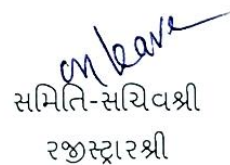 on leave
સમિતિ-સચિવશ્રી
રજીસ્ટ્રારશ્રી